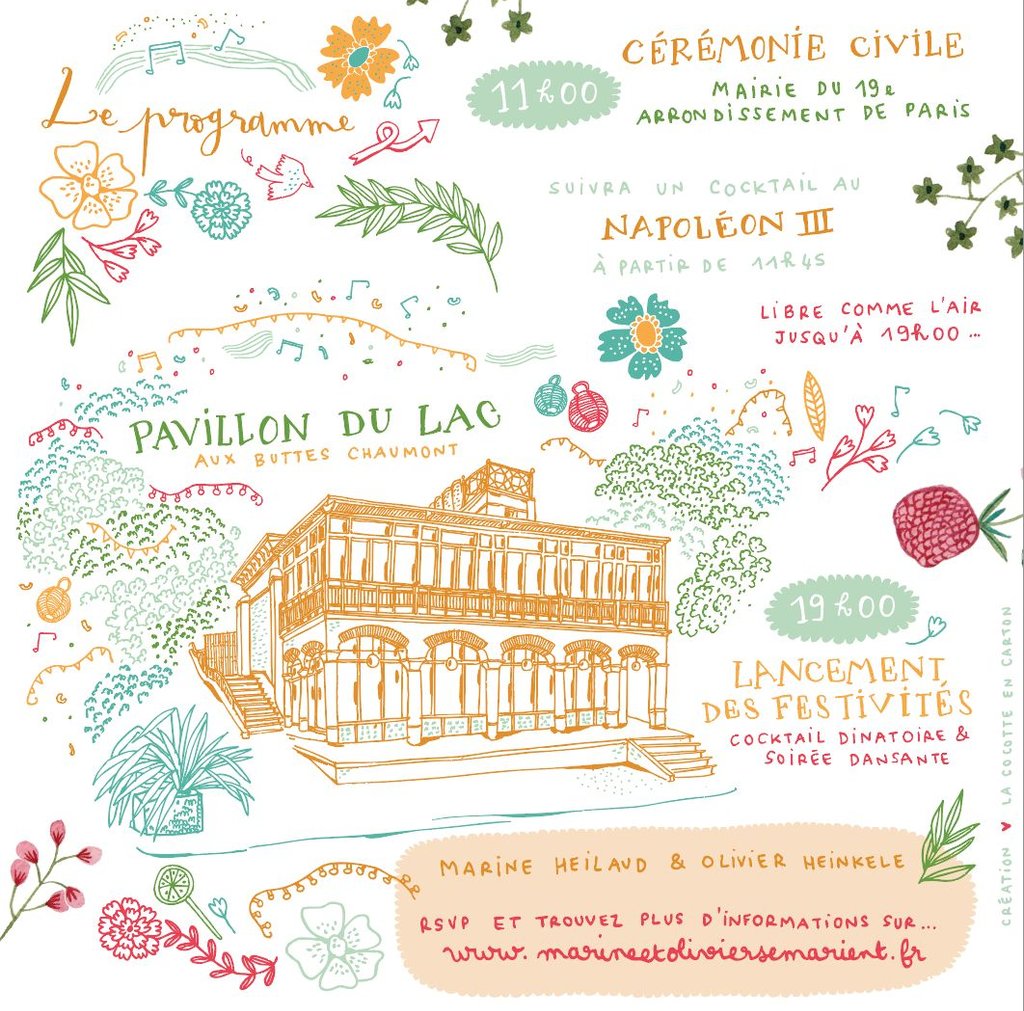 Le programme
11h00
CÉRÉMONIE CIVILE
MAIRIE DU 19e
ARRONDISSEMENT DE PARIS
SUIVRA UN COCKTAIL AU
NAPOLÉON III
À PARTIR DE 11h45
LIBRE COMME L'AIR
JUSQU'À 19h00...
PAVILLON DU LAC
AUX BUTTES CHAUMONT
19h00
LANCEMENT
DES FESTIVITÉS
COCKTAIL DINATOIRE &
SOIRÉE DANSANTE
MARINE HEILAUD & OLIVIER HEINKELE
RSVP ET TROUVEZ PLUS D'INFORMATIONS SUR...
www.marineetoliviersemarient.fr
CRÉATION ♥ LA COCOTTE EN CARTON